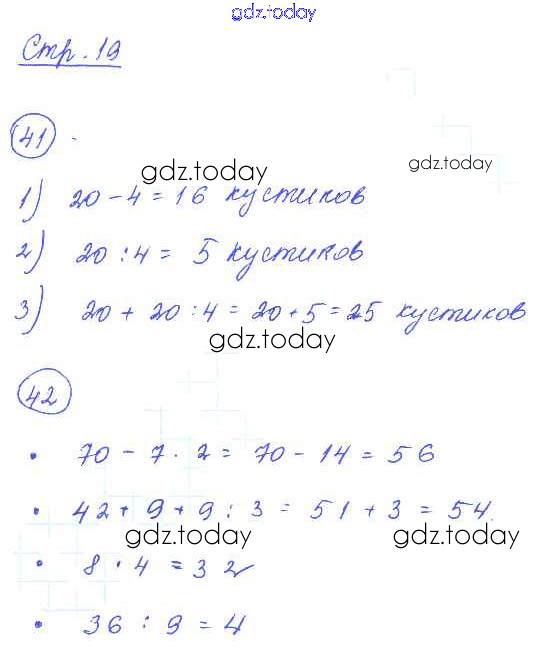 gdz.today
Стр. 19
41
gdz.today
gdz.today
1) 20 - 4 = 16 кустиков
2) 20 : 4 = 5 кустиков
3) 20 + 20 : 4 = 20 + 5 = 25 кустиков
gdz.today
42
• 70 - 7 · 2 = 70 - 14 = 56
• 42 + 9 + 9 : 3 = 51 + 3 = 54.
gdz.today
gdz.today
• 8 · 4 = 32
• 36 : 9 = 4